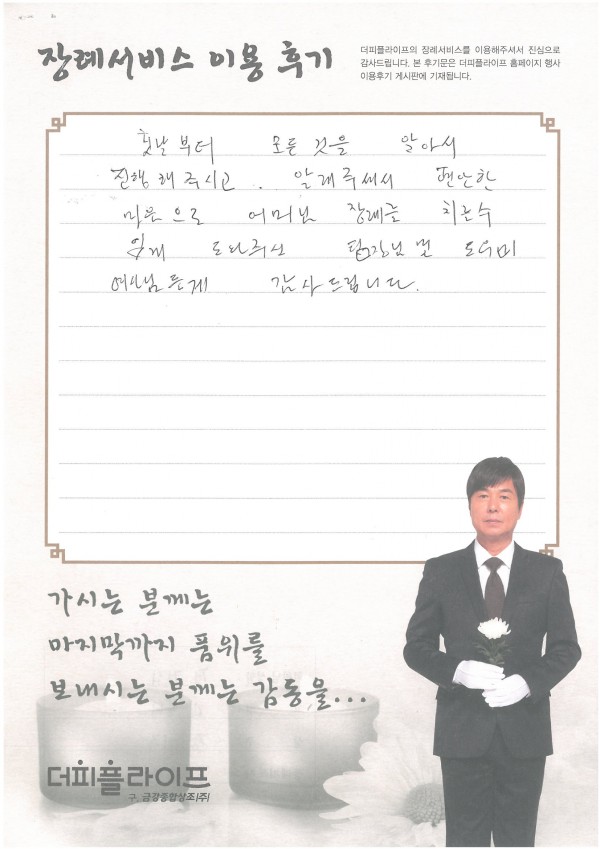 장례서비스 이용 후기
더피플라이프의 장례서비스를 이용해주셔서 진심으로
감사드립니다. 본 후기문은 더피플라이프 홈페이지 행사
이용후기 게시판에 기재됩니다.
첫날부터 모든 것을 알아서
진행해주시고.. 알려주셔서 편안한
마음으로 어머님 장례를 치룰수
있게 도와주신 팀장님 및 도우미
여사님들게 감사드립니다.
가시는 분께는
마지막까지 품위를
보내시는 분께는 감동을...
더피플라이프
구. 금강종합상조(주)